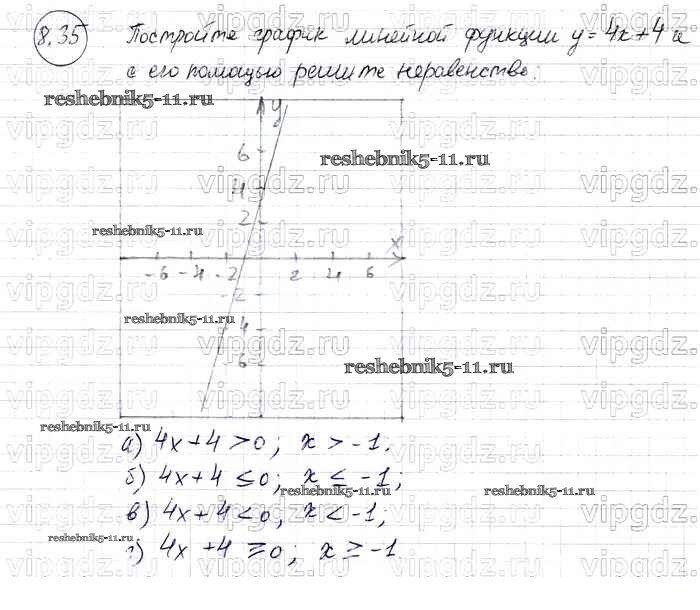 8.35 Постройте график линейной функции y = 4x + 4 и
с его помощью решите неравенство:
reshebnik5-11.ru
vipgdz.ru
y
reshebnik5-11.ru
6
4
2
reshebnik5-11.ru
x
-6 -4 -2 2 4 6
-2
reshebnik5-11.ru
4
-6
reshebnik5-11.ru
reshebnik5-11.ru
а) 4x + 4 > 0; x > -1.
б) 4x + 4 ≤ 0; x ≤ -1;
reshebnik5-11.ru reshebnik5-11.ru
в) 4x + 4 < 0; x < -1;
reshebnik5-11.ru
г) 4x + 4 ≥ 0; x ≥ -1